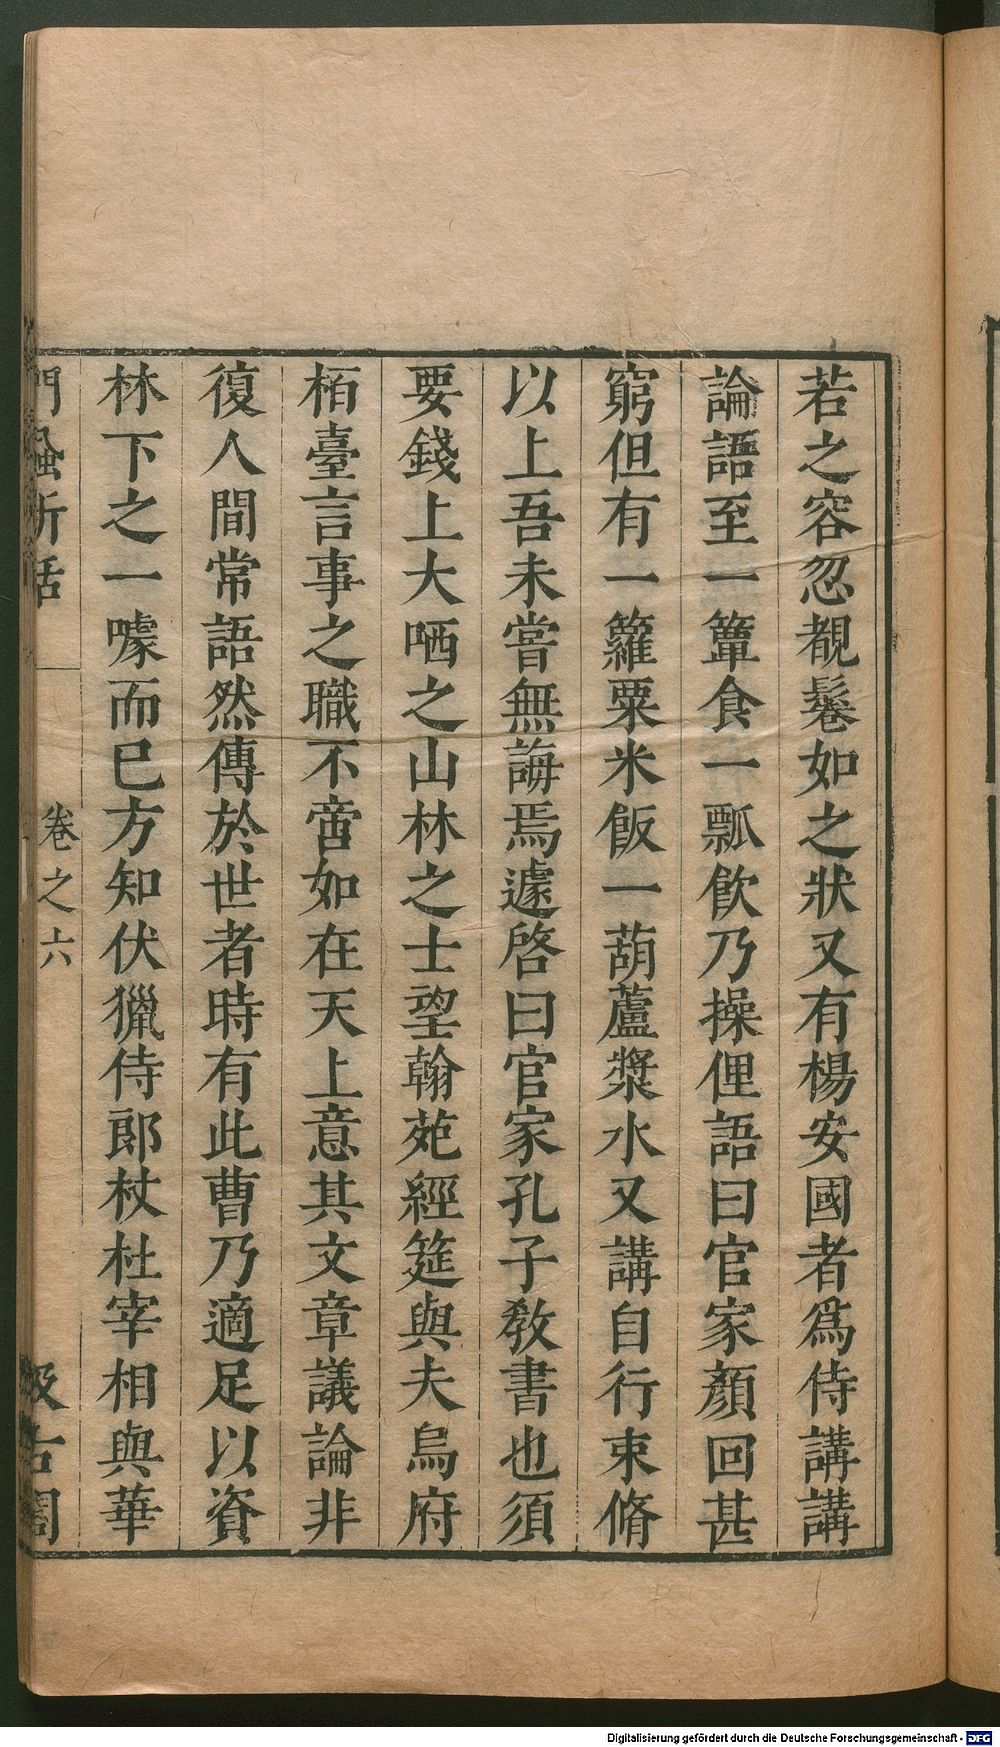 若之容忽覩鬈如之狀又有楊安國者爲侍講講
論語至一簞食一瓢飮乃操俚語曰官家顏回甚
窮但有一籮粟米飯一葫蘆漿水又講自行束脩
以上吾未嘗無誨焉遽啓曰官家孔子敎書也須
要錢上大哂之山林之士望翰苑經筵與夫烏府
栢臺言事之職不啻如在天上意其文章議論非
復人間常語然傳於世者時有此曹乃適足以資
林下之一噱而已方知伏獵侍郎杖杜宰相與華
門蝨新話 卷之六 汲古閣
Digitalisierung gefördert durch die Deutsche Forschungsgemeinschaft - DFG